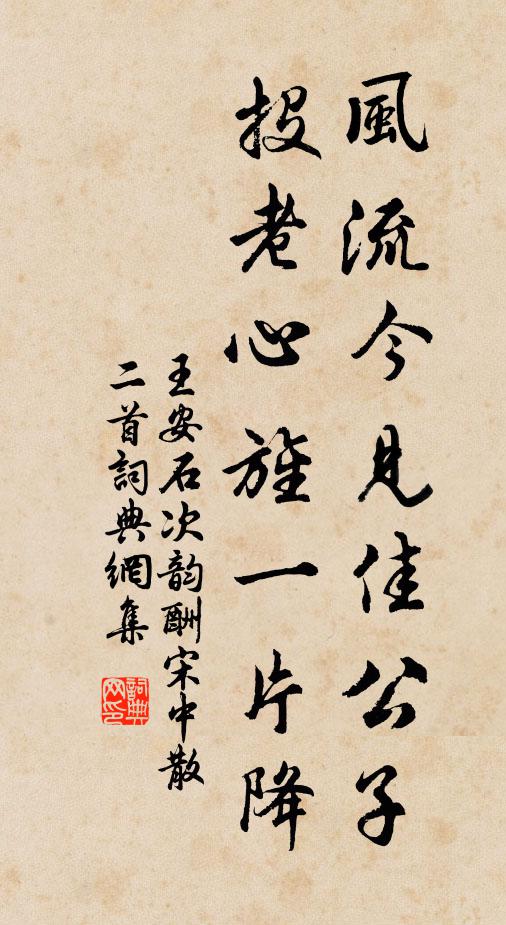 風流今見佳公子
投老心旌一片降
王安石次韵酬宋中散
二首詞典網集
詞典
网印